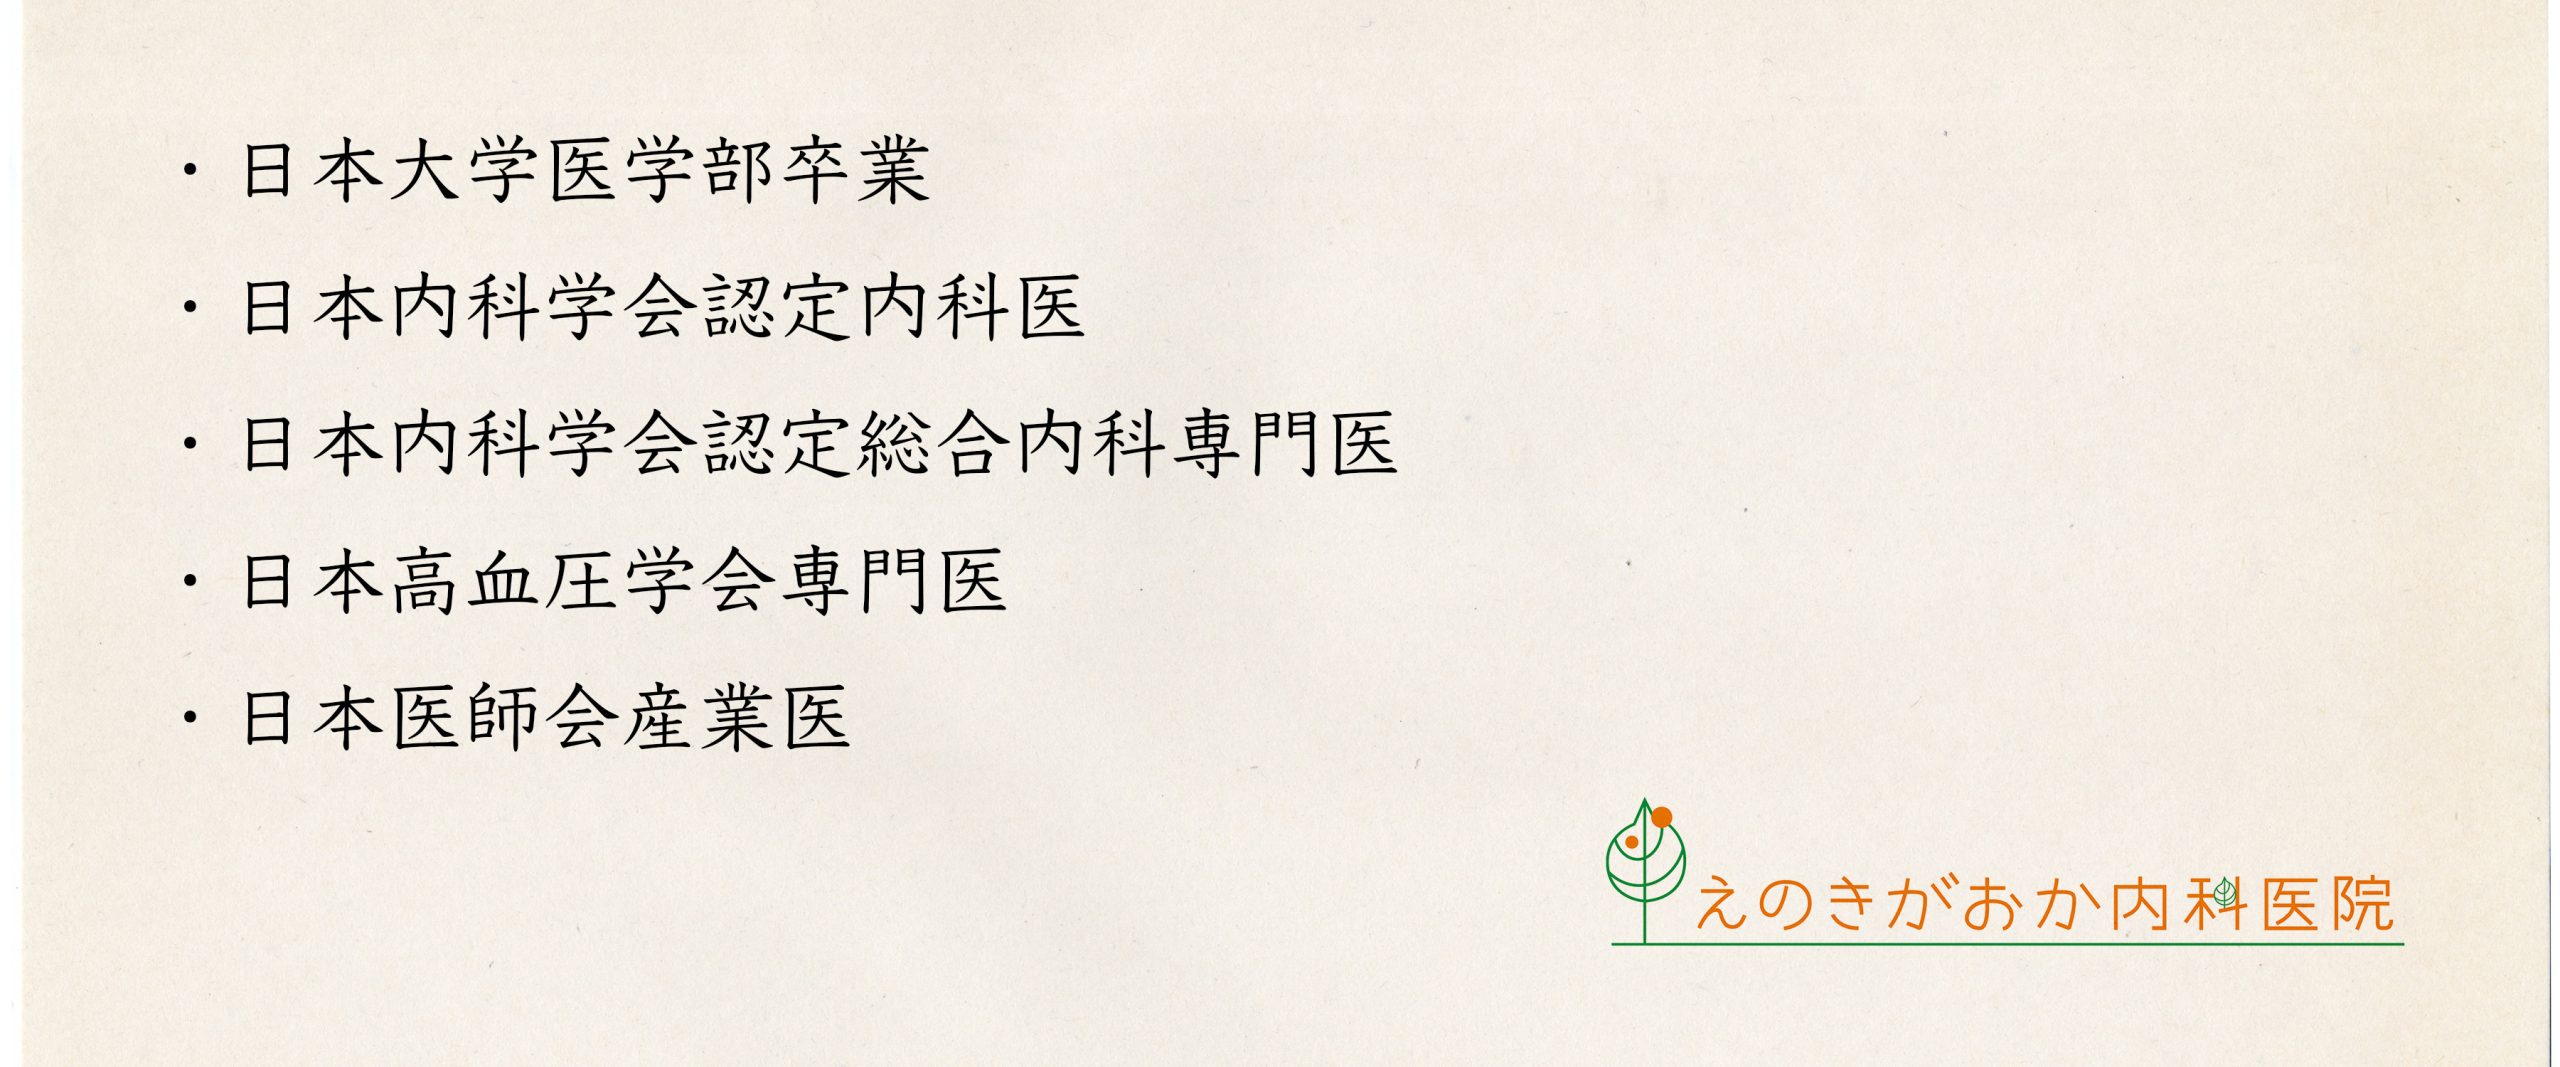 ・日本大学医学部卒業
・日本内科学会認定内科医
・日本内科学会認定総合内科専門医
・日本高血圧学会専門医
・日本医師会産業医
えのきがおか内科医院